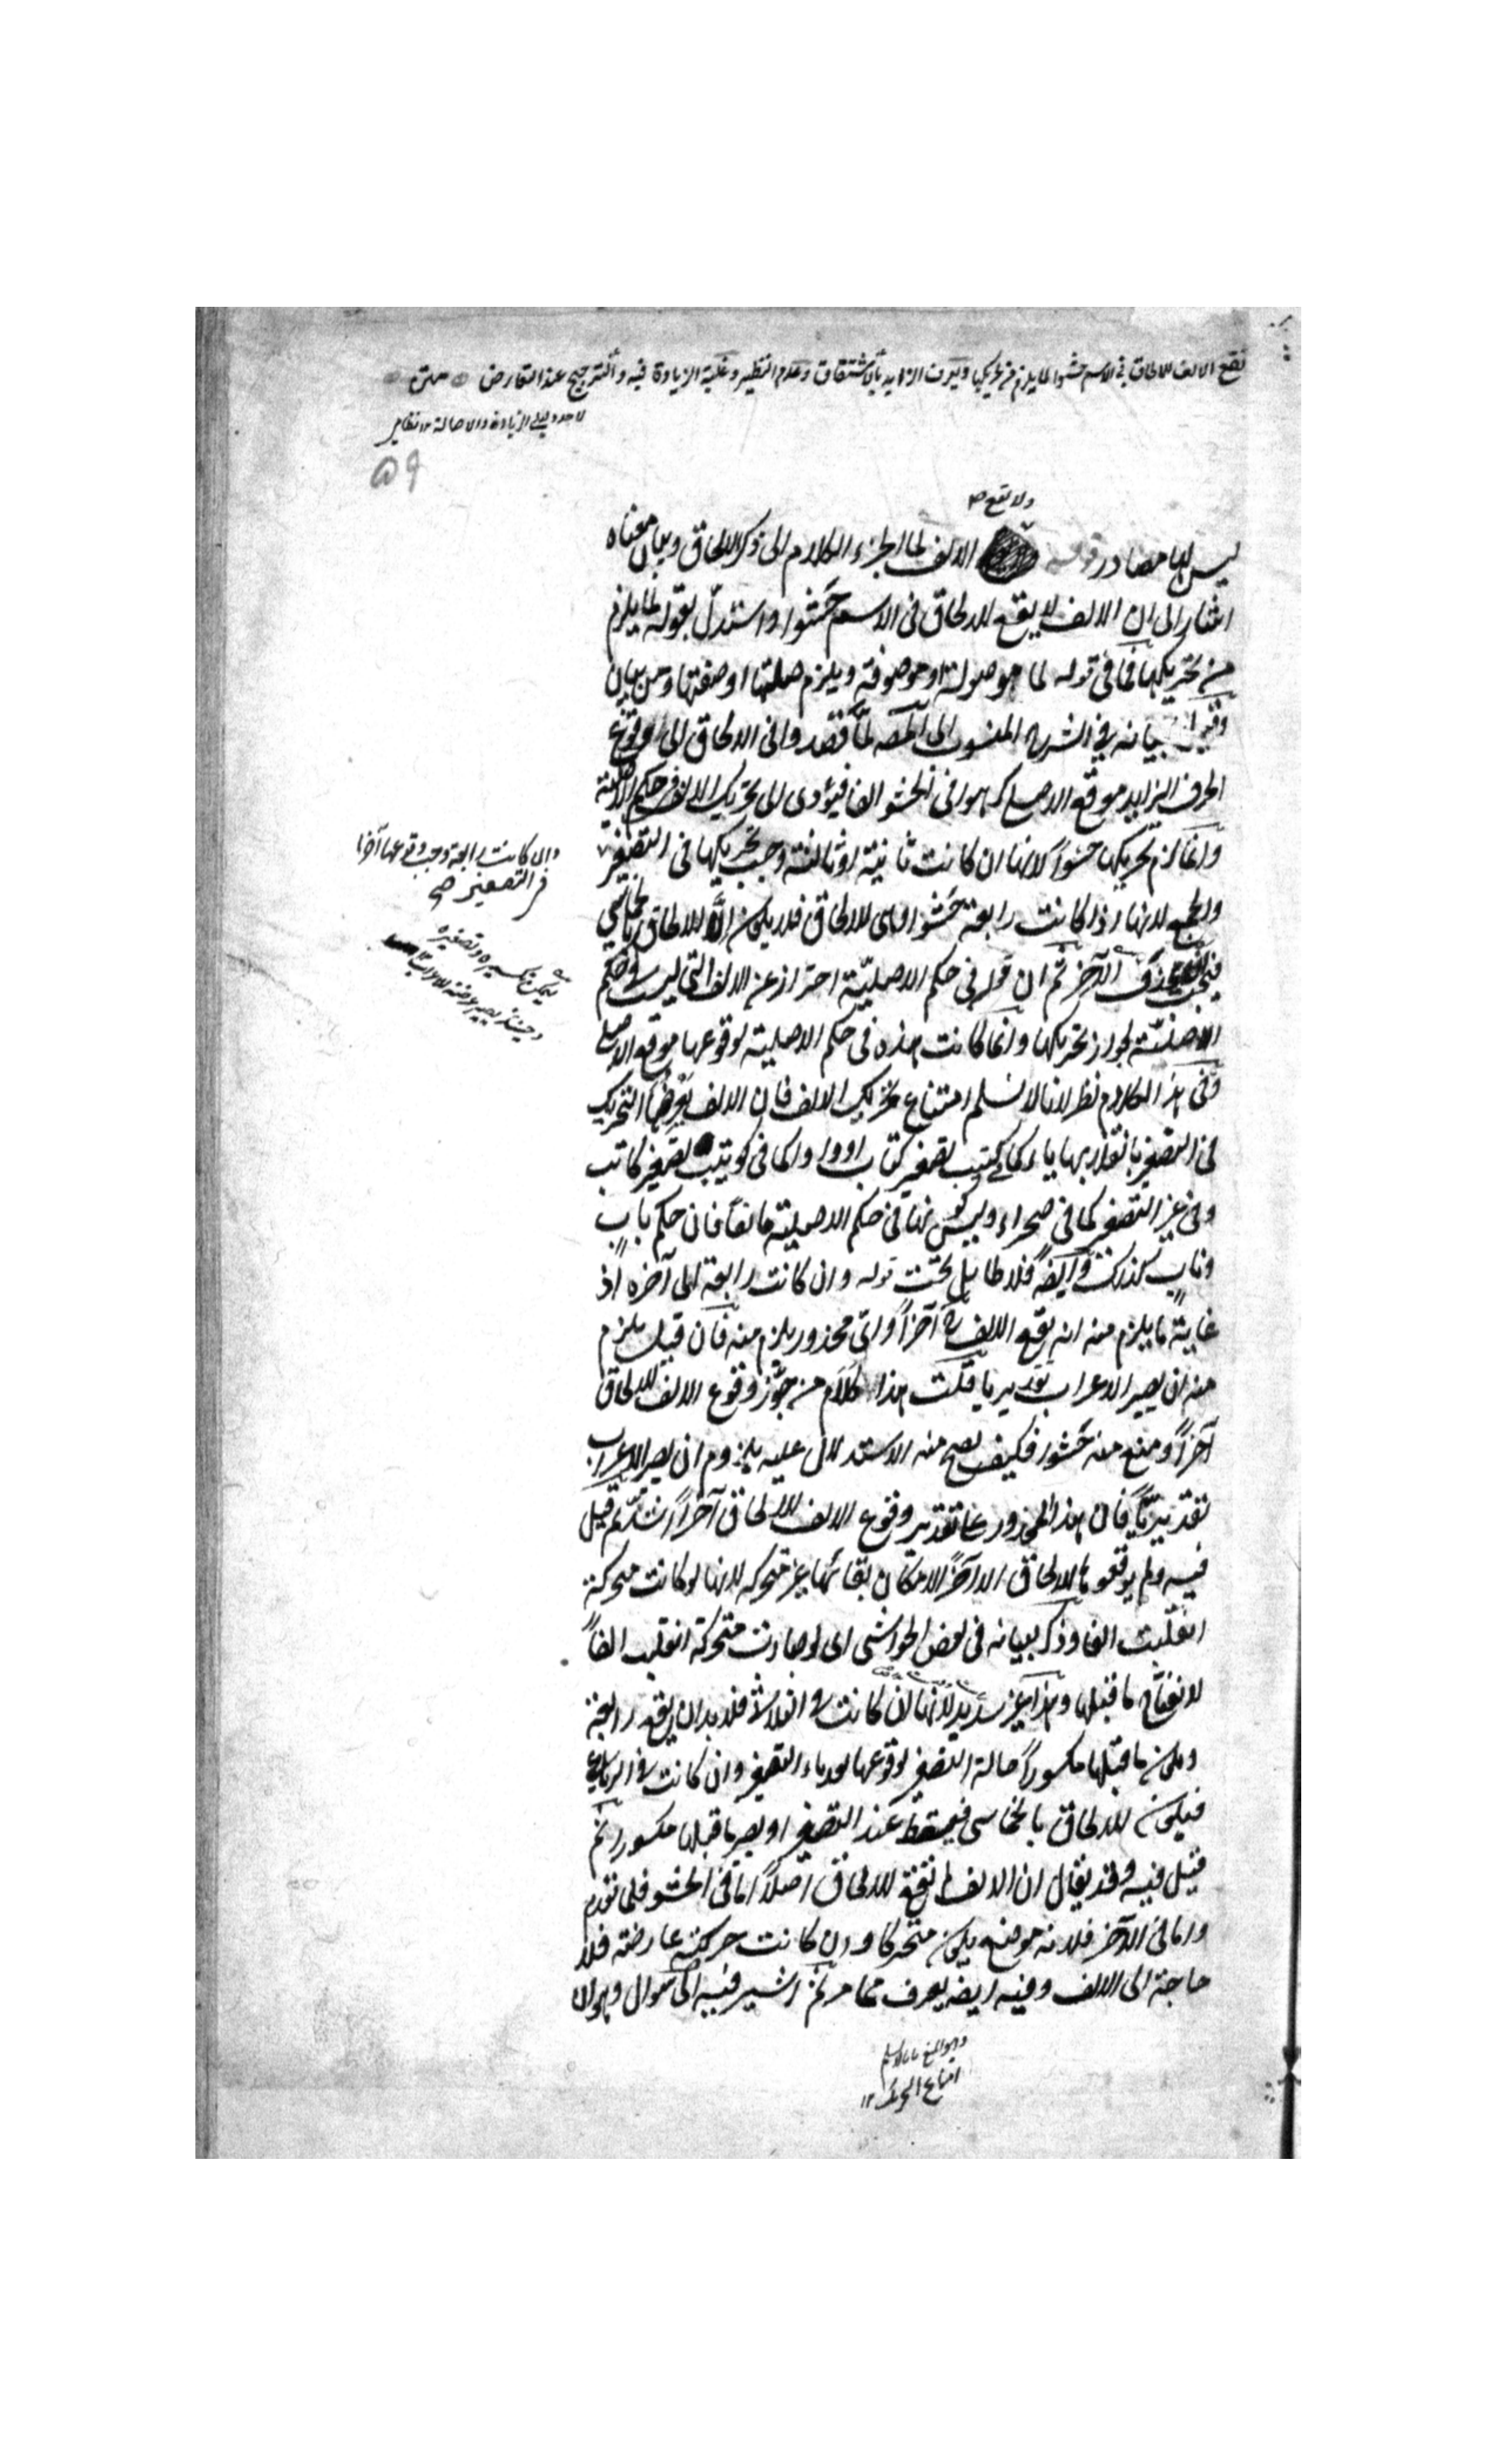 تقع الالف للالحاق في الاسم حشوا لما يلزم من تحريكها ويعرف الزايد بالاشتقاق وعدم النظير وغلبة الزيادة فيه والترجيح عند التعارض متن
لاحد دليلي الزيادة والاصالة
۵۹
ولا تقع
ليس لها مصادر قوله الالف لما انجر الكلام الى ذكر الالحاق وبيان معناه
اشار الى ان الالف لا يقع للالحاق في الاسم حشوا واستدل بقوله لما يلزم
من تحريكها فما في قوله لما موصولة او موصوفة ويلزم صلتها او صفتها ومن بيان
وقيل بيانه في الشرح المنسوب الى المص لما قصدوا في الالحاق الى وقوع
الحرف الزايد موقع الاصل كرهوا في الحشو الفا فيؤدى الى تحريك الالف في حكم الاصلية
وانما لزم تحريكها حشوا لانها ان كانت ثانية او ثالثة وجب تحريكها في التصغير
وان كانت رابعة وجب وقوعها آخرا
في التصغير صح
والجمع لانها اذا كانت رابعة حشوا وهى للالحاق فلا يكون الا للالحاق بخماسي
فيجب حذف الآخر ثم ان قوله في حكم الاصلية احتراز عن الالف التي ليست في حكم
الاصلية لجواز تحريكها وانما كانت هذه في حكم الاصلية لوقوعها موقع الاصل
وفي هذا الكلام نظر لانا لا نسلم امتناع تحريك الالف فان الالف يعرضها التحريك
في التصغير بانقلابها ياء كما في كتيب تصغير كتاب او واوا كما في كويتب تصغير كاتب
وفي غير التصغير كما في صحراء وليس كونها في حكم الاصلية مانعا فان حكم باب
وناب كذلك وايضا فلا طايل تحت قوله وان كانت رابعة الى آخره اذ
غاية ما يلزم منه انه يقع الالف آخرا واي محذور يلزم منه فان قيل يلزم
منه ان يصير الاعراب تقديريا قلت هذا كلام من جوز وقوع الالف للالحاق
آخرا ومنع منه حشوا فكيف يصح منه الاستدلال عليه بلزوم ان يصير الاعراب
تقديريا فان هذا المحذور على تقدير وقوع الالف للالحاق آخرا اشد ثم قيل
فيه ولم يوقعوها للالحاق الا آخرا لامكان بقائها غير متحركة لانها لو كانت متحركة
انقلبت الفا وذكر بيانه في بعض الحواشى اى لو صارت متحركة انقلبت الفا
لانفتاح ما قبلها وهذا غير سديد لانها ان كانت في الثلاثي فلا بد ان يقع رابعة
ويكون ما قبلها مكسورا حالة التصغير لوقوعها بعد ياء التصغير وان كانت في الرباعي
فيكون للالحاق بالخماسي فيسقط عند التصغير او يصير ما قبلها مكسورا ثم
قيل فيه وقد يقال ان الالف لم تقع للالحاق اصلا اما في الحشو فلما تقدم
واما في الآخر فلانه موضع يكون متحركا وان كانت حركته عارضة فلا
حاجة الى الالف وفيه ايضا يعرف مما مر ثم اشير فيه الى سوال وهو ان
وهو المنع بانا لا نسلم
امتناع التحريك ١٢